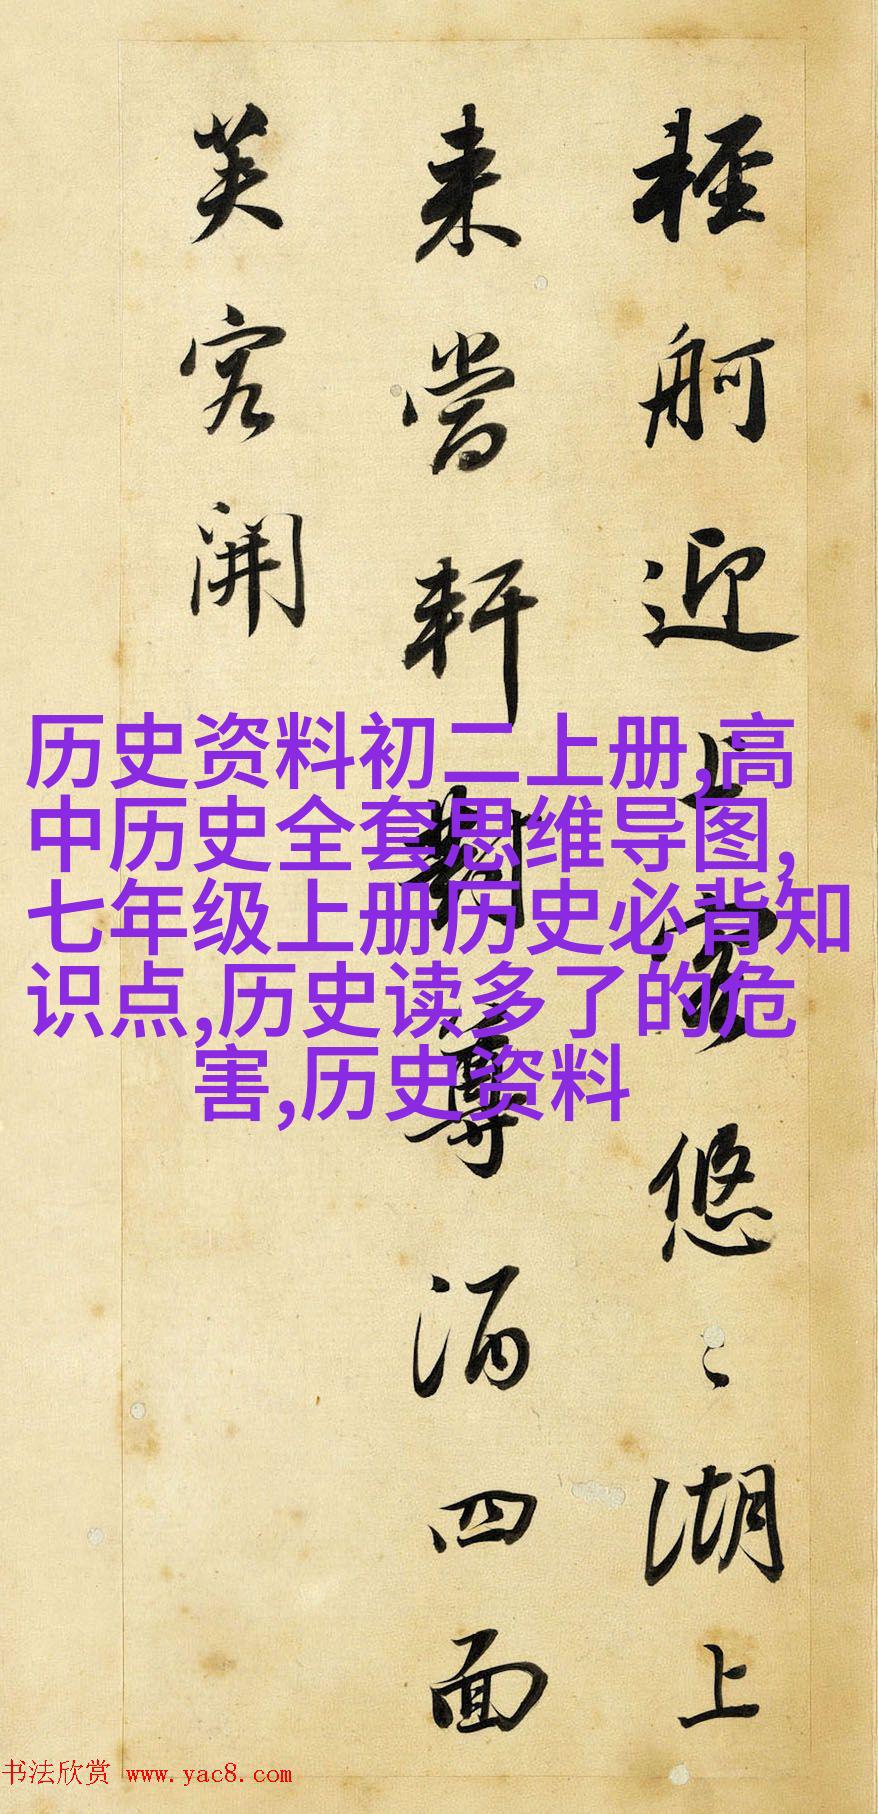 輕舸迎上客悠〻湖上
来當軒對尊酒四面
芙容開
历史资料初二上册,高
中历史全套思维导图,
七年级上册历史必背知
识点,历史读多了的危
害,历史资料
书法欣赏 www.yac8.com